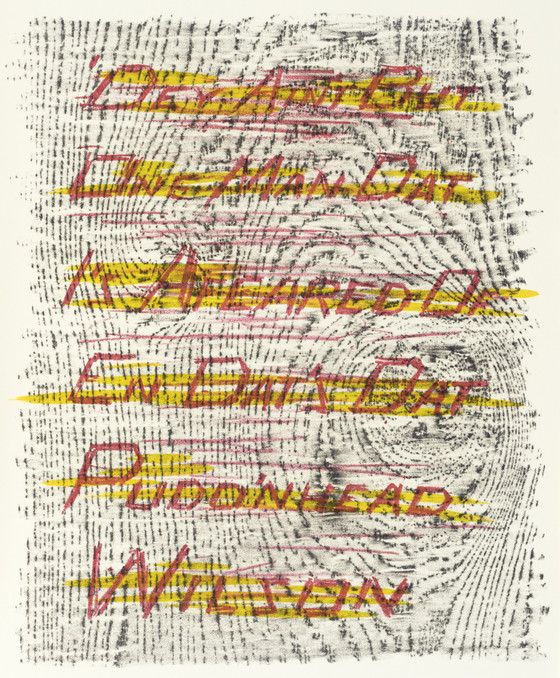 'DEY AIN'T BUT
ONE MAN DAT
I'S AFEARED OF
EN DAT'S DAT
PUDD'NHEAD
WILSON